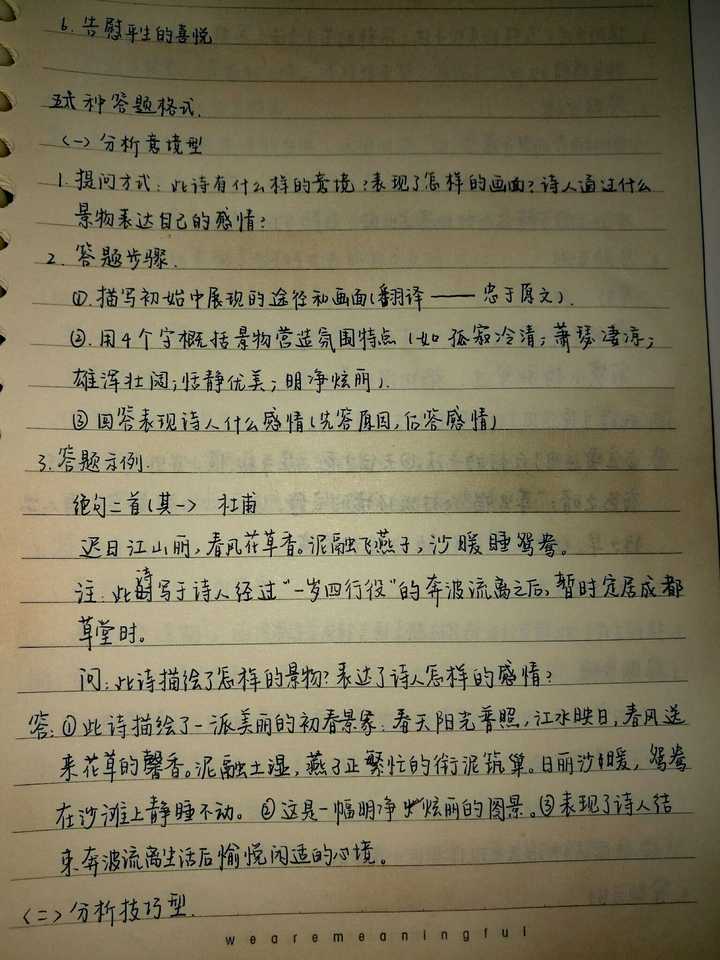 6. 告慰平生的喜悦
五大种答题格式.
(一) 分析意境型
1. 提问方式: 此诗有什么样的意境?表现了怎样的画面?诗人通过什么
景物表达自己的感情?
2. 答题步骤.
①.描写初始中展现的途径和画面(翻译——忠于原文).
②.用4个字概括景物营造氛围特点 (如 孤寂冷清; 萧瑟凄凉;
雄浑壮阔;恬静优美; 明净炫丽).
③回答表现诗人什么感情(先答原因,后答感情)
3.答题示例.
绝句二首(其一) 杜甫
迟日江山丽,春风花草香。泥融飞燕子,沙暖睡鸳鸯。
注: 此诗写于诗人经过“一岁四行役”的奔波流离之后,暂时定居成都
草堂时。
问:此诗描绘了怎样的景物?表达了诗人怎样的感情?
答:①此诗描绘了一派美丽的初春景象: 春天阳光普照,江水映日,春风送
来花草的馨香。泥融土湿,燕子正繁忙的衔泥筑巢。日丽沙暖, 鸳鸯
在沙滩上静睡不动。②这是一幅明净炫丽的图景。③表现了诗人结
束奔波流离生活后愉悦闲适的心境。
(二)分析技巧型.
wearemeaningful